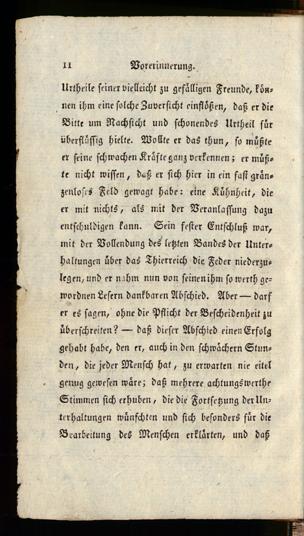 II Vorerinnerung.
Urtheile seiner vielleicht zu gefälligen Freunde, kön-
nen ihm eine solche Zuversicht einflößen, daß er die
Bitte um Nachsicht und schonendes Urtheil für
überflüssig hielte. Wollte er das thun, so müßte
er seine schwachen Kräfte ganz verkennen; er müß-
te nicht wissen, daß er sich hier in ein fast grän-
zenloses Feld gewagt habe: eine Kühnheit, die
er mit nichts, als mit der Veranlassung dazu
entschuldigen kann. Sein fester Entschluß war,
mit der Vollendung des letzten Bandes der Unter-
haltungen über das Thierreich die Feder niederzu-
legen, und er nahm nun von seinen ihm so werth ge-
wordnen Lesern dankbaren Abschied. Aber — darf
er es sagen, ohne die Pflicht der Bescheidenheit zu
überschreiten? — daß dieser Abschied einen Erfolg
gehabt habe, den er, auch in den schwächern Stun-
den, die jeder Mensch hat, zu erwarten nie eitel
genug gewesen wäre; daß mehrere achtungswerthe
Stimmen sich erhuben, die die Fortsetzung der Un-
terhaltungen wünschten und sich besonders für die
Bearbeitung des Menschen erklärten, und daß